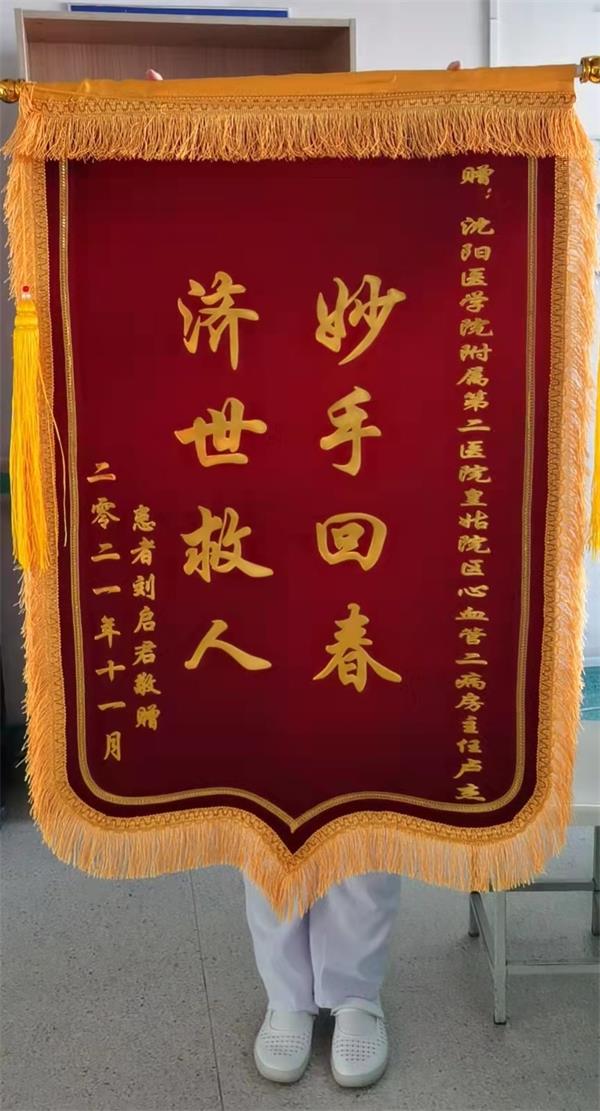 赠：沈阳医学院附属第二医院皇姑院区心血管二病房主任卢杰
妙手回春
济世救人
患者刘启君敬赠
二零二一年十一月